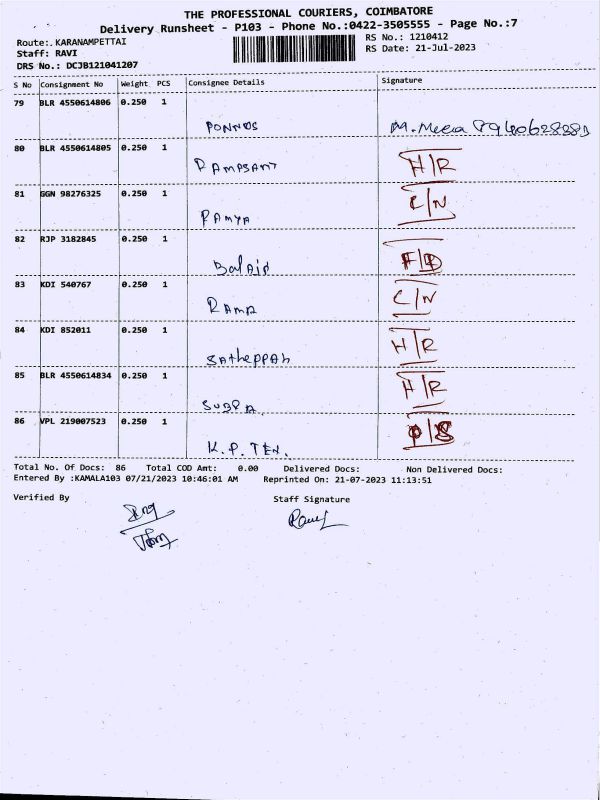 THE PROFESSIONAL COURIERS, COIMBATORE
Delivery Runsheet - P103 - Phone No.:0422-3505555 - Page No.:7
Route:.KARANAMPETTAI
RS No.: 1210412
Staff: RAVI
RS Date: 21-Jul-2023
DRS No.: DCJB121041207
S No Consignment No Weight PCS Consignee Details Signature
79 BLR 4550614806 0.250 1
PONNUS M.Meea
80 BLR 4550614805 0.250 1
RAMPSANT H/R
81 GGN 98276325 0.250 1
RAMYA C/N
82 RJP 3182845 0.250 1
Balaji
83 KDI 540767 0.250 1
RAMA C/N
84 KDI 852011 0.250 1
SAtheppAh H/R
85 BLR 4550614834 0.250 1
SUBRA H/R
86 VPL 219007523 0.250 1
K.P. TEN.
Total No. Of Docs: 86 Total COD Amt: 0.00 Delivered Docs: Non Delivered Docs:
Entered By :KAMALA103 07/21/2023 10:46:01 AM Reprinted On: 21-07-2023 11:13:51
Verified By Staff Signature